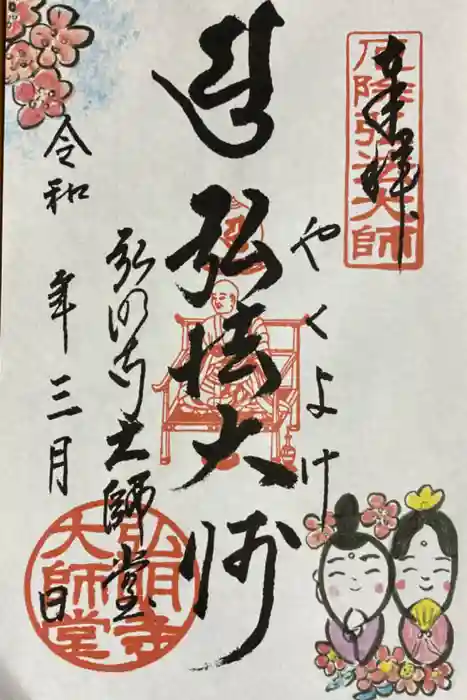 奉拝
厄除弘法大師
やくよけ
弘法大師
弘明寺大師堂
弘明寺
大師堂
令和 年三月 日